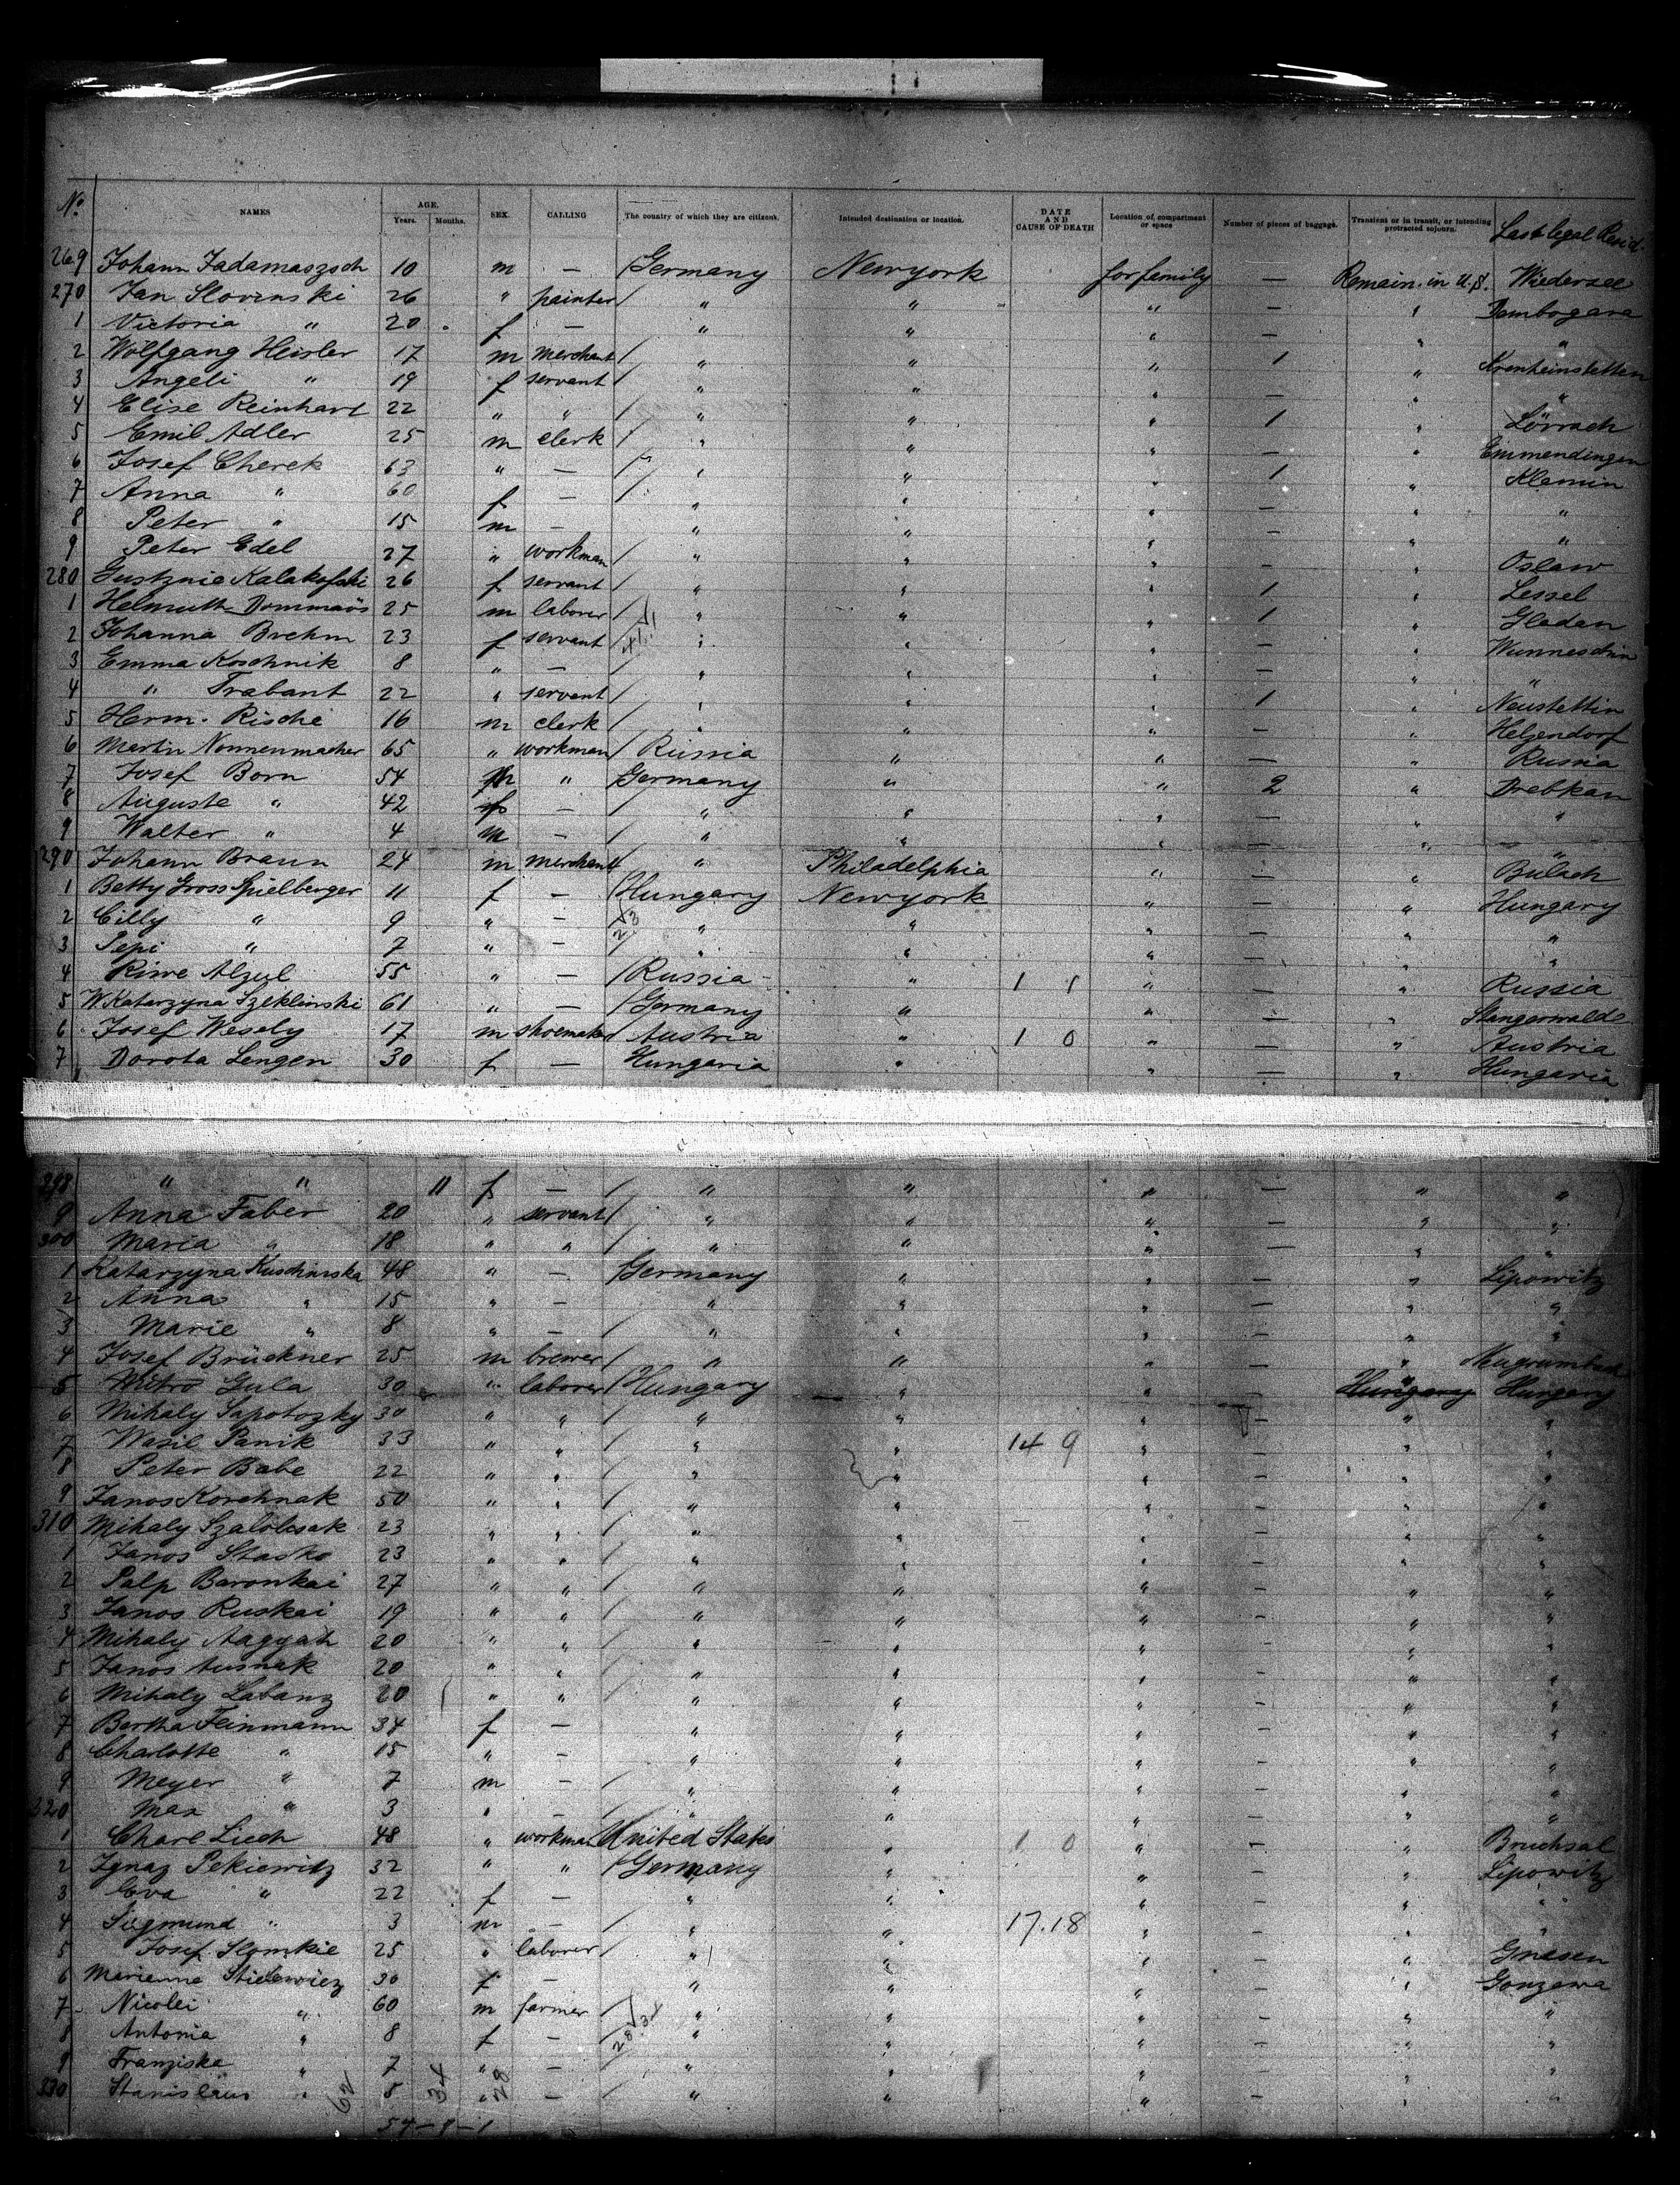 No. NAMES AGE. Years. Months. SEX. CALLING The country of which they are citizens. Intended destination or location. DATE AND CAUSE OF DEATH Location of compartment or space Number of pieces of baggage. Transient or in transit, or intending protracted sojourn. Last legal Resid.
269 Johann Jadamaszsch 10 m — Germany Newyork for family — Remain in U.S. Wiedersee
270 Jan Slovinski 26 " painter " " " — " Dembogara
1 Victoria " 20 f — " " " — " "
2 Wolfgang Heisler 17 m merchant " " " 1 " Krenheinstetten
3 Angeli " 19 f servant " " " — " "
4 Elise Reinhart 22 " " " " " 1 " Lörrach
5 Emil Adler 25 m clerk " " " — " Emmendingen
6 Josef Cherek 63 " — " " " 1 " Klemin
7 Anna " 60 f — " " " — " "
8 Peter " 15 m — " " " — " "
9 Peter Edel 27 " workman " " " — " Oslaw
280 Kalakofski 26 f servant " " " 1 " Lessel
1 Helmuth Dommaös 25 m laborer " " " 1 " Gladan
2 Johanna Brehm 23 f servant " " " — " Wunneschin
3 Emma Koschnik 8 " — " " " — " "
4 " Trabant 22 " servant " " " 1 " Neustettin
5 Herm. Rische 16 m clerk " " " — " Helgendorf
6 Martin Nonnenmacher 65 " workman Russia " " — " Russia
7 Josef Born 54 m " Germany " " 2 " Drebkan
8 Auguste " 42 f — " " " — " "
9 Walter " 4 m — " " " — " "
290 Johann Braun 24 m merchant " Philadelphia " — " Bülach
1 Betty Gross Spielberger 11 f — Hungary Newyork " — " Hungary
2 Cilly " 9 " — " " " — " "
3 Pepi " 7 " — " " " — " "
4 Riwe Alzul 55 " — Russia " " — " Russia
5 W. Katarzyna Szeklinski 61 " — Germany " " — " Stangenwalde
6 Josef Wesely 17 m shoemaker Austria " 1 0 " — " Austria
7 Dorota Lengen 30 f — Hungaria " " — " Hungaria
298 " " 11 f — " " " — " "
9 Anna Faber 20 " servant " " " — " "
300 Maria " 18 " " " " " — " "
1 Katarzyna Kuschinska 48 " — Germany " " — " Lipowitz
2 Anna " 15 " — " " " — " "
3 Marie " 8 " — " " " — " "
4 Josef Brückner 25 m brewer " " " — "
5 Mitro Gula 30 " laborer Hungary " " — Hungary Hungary
6 Mihaly Sapotozky 30 " " " " " — " "
7 Wasil Panik 33 " " " " 14 9 " — " "
8 Peter Babe 22 " " " " " — " "
9 Janos Korchnak 50 " " " " " — " "
310 Mihaly Szalobsak 23 " " " " " — " "
1 Janos Stasko 23 " " " " " — " "
2 Palp Baronkai 27 " " " " " — " "
3 Janos Ruskai 19 " " " " " — " "
4 Mihaly Aagyah 20 " " " " " — " "
5 Janos Ausnak 20 " " " " " — " "
6 Mihaly Labanz 20 " " " " " — " "
7 Bertha Feinmann 34 f — " " " — " "
8 Charlotte " 15 " — " " " — " "
9 Meyer " 7 m — " " " — " "
320 Max " 3 " — " " " — " "
1 Charl Liech 48 " workman United States " 1 0 " — " Bruchsal
2 Ignaz Pekiewitz 32 " " Germany " " — " Lipowitz
3 Eva " 22 f — " " " — " "
4 Siegmund " 3 m — " " 17.18 " — " "
5 Josef Slomkie 25 " laborer " " " — " Gnesen
6 Marianna 30 f — " " " — " Gonzawa
7 Nicolei " 60 m farmer " " " — " "
8 Antonia " 8 f — " " " — " "
9 Franziska " 7 " — " " " — " "
330 Stanislaus " 5 " — " " " — " "
62 34 28
54 — 8 — 1